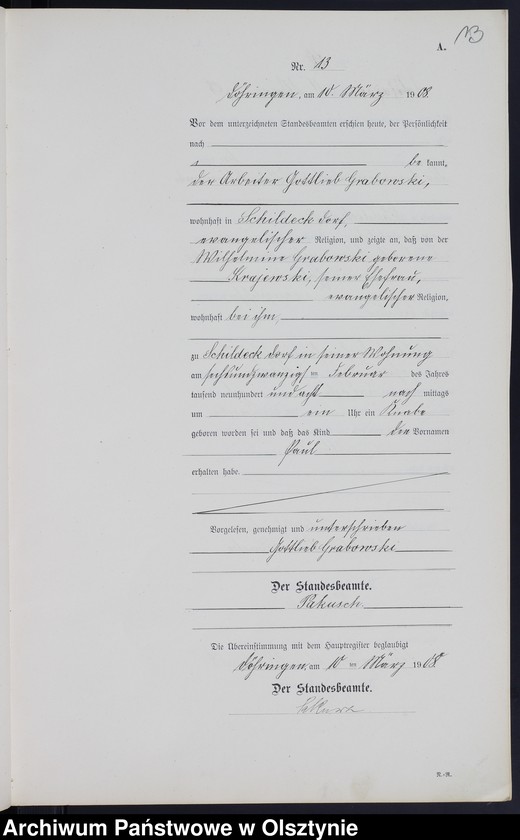 A. 13
Nr. 13
Döhringen, am 10. März 1908.
Vor dem unterzeichneten Standesbeamten erschien heute, der Persönlichkeit
nach
be kannt,
der Arbeiter Gottlieb Grabowski,
wohnhaft in Schildeck Dorf,
evangelischer Religion, und zeigte an, daß von der
Wilhelmine Grabowski geborene
Krajewski, seiner Ehefrau,
evangelischer Religion,
wohnhaft bei ihm,
zu Schildeck Dorf in seiner Wohnung
am sechsundzwanzigsten Februar des Jahres
tausend neunhundert und acht nach mittags
um ein Uhr ein Knabe
geboren worden sei und daß das Kind den Vornamen
Paul
erhalten habe.
Vorgelesen, genehmigt und unterschrieben
Gottlieb Grabowski
Der Standesbeamte.
Die Übereinstimmung mit dem Hauptregister beglaubigt
Döhringen, am 10 ten März 1908
Der Standesbeamte.
Archiwum Państwowe w Olsztynie